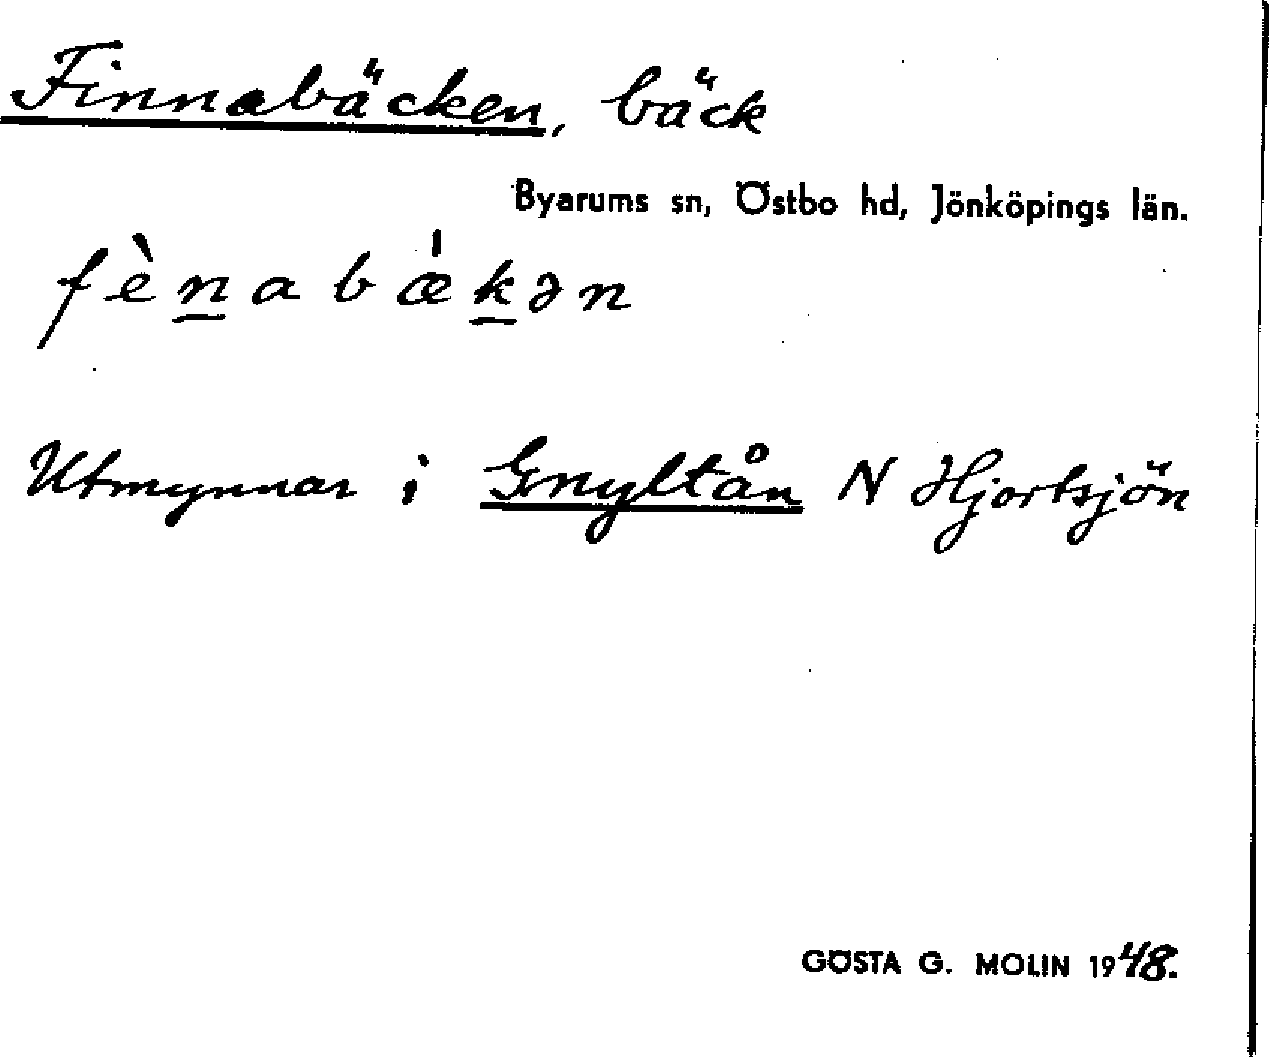 Finnabäcken, bäck
Byarums sn, Östbo hd, Jönköpings län.
fènabǽkən
Utmynnar i Gnyltån N Hjortsjön
GÖSTA G. MOLIN 1948.